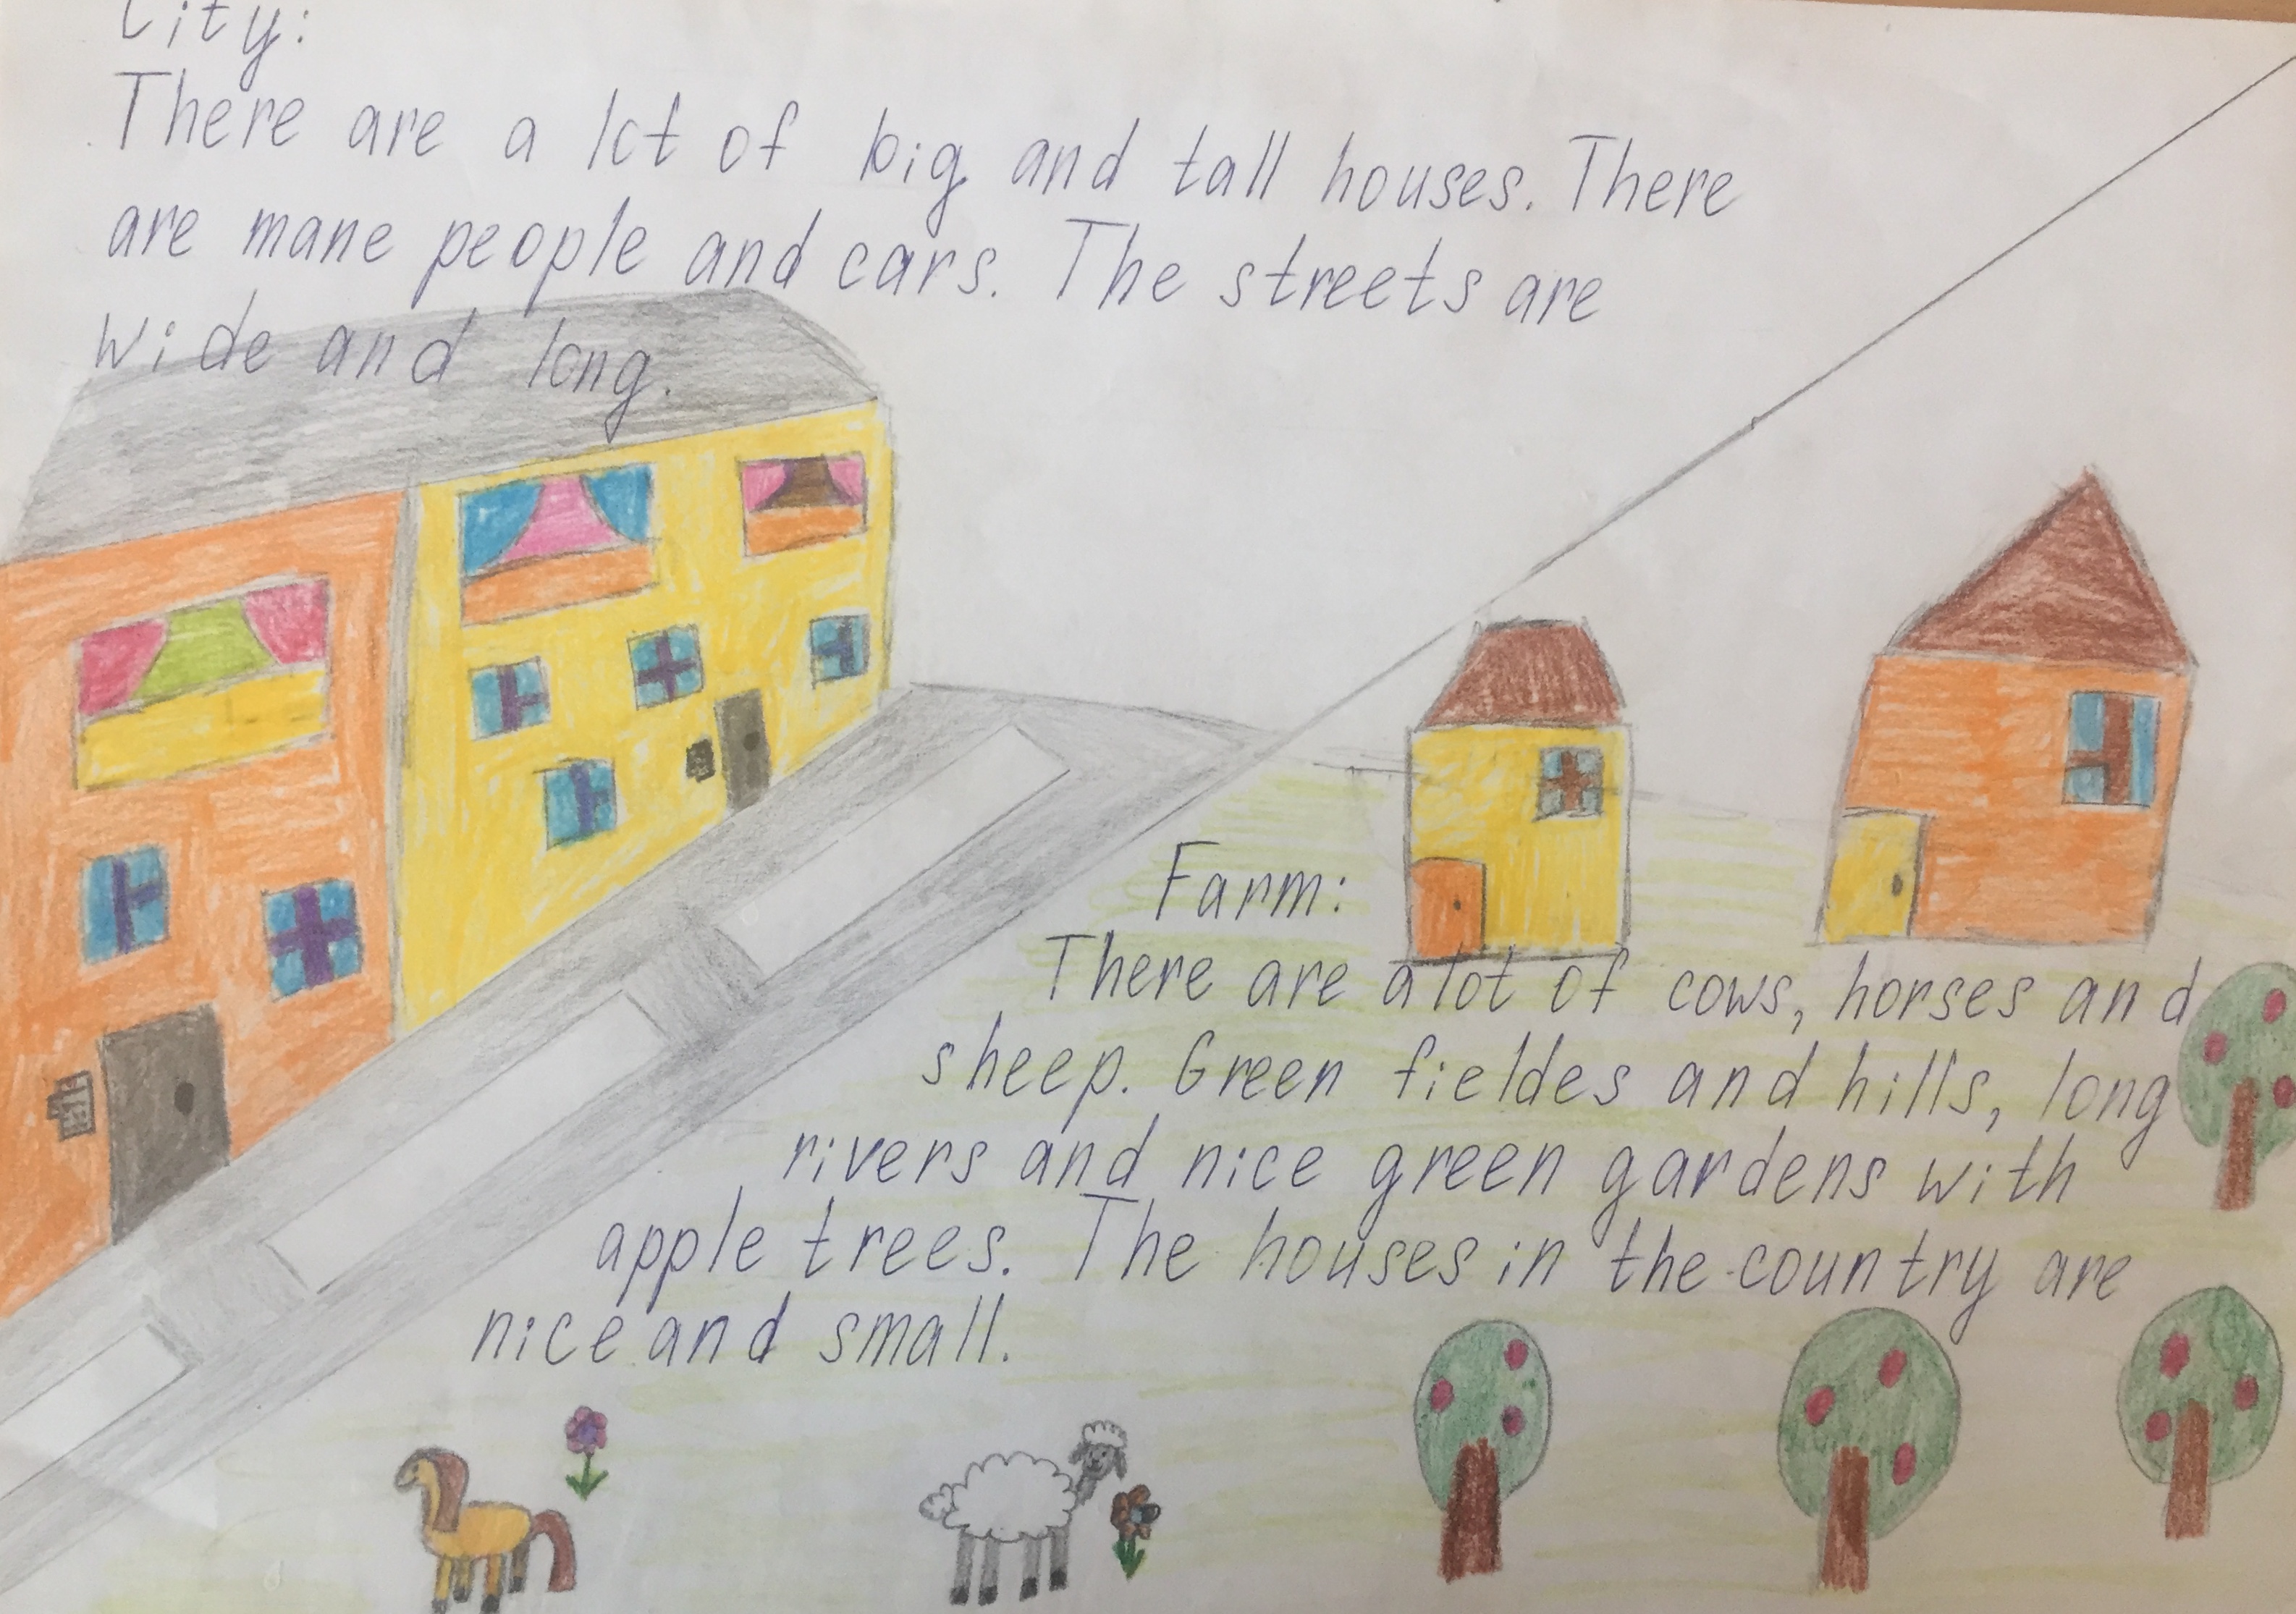 City:
There are a lot of big and tall houses. There
are mane people and cars. The streets are
wide and long.
Farm:
There are a lot of cows, horses and
sheep. Green fieldes and hills, long
rivers and nice green gardens with
apple trees. The houses in the country are
nice and small.